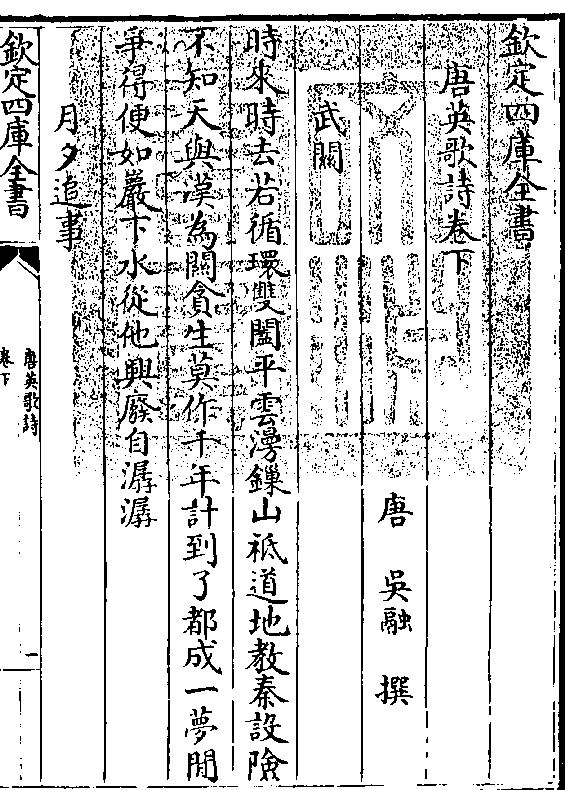 欽定四庫全書
唐英歌詩卷下
唐 吳融 撰
武關
時來時去若循環雙闔平雲漫鏁山祗道地教秦設險
不知天與漢為關貪生莫作千年計到了都成一夢閒
爭得便如巖下水從他興廢自潺潺
月夕追事
欽定四庫全書
唐英歌詩
卷下
一